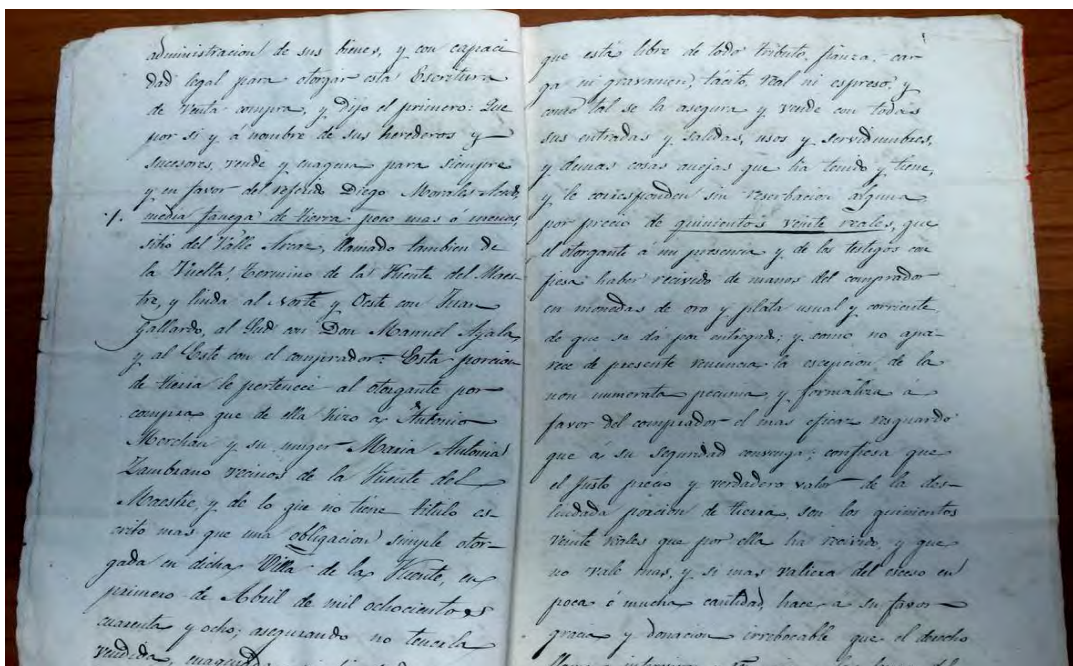 administracion de sus bienes, y con capaci
dad legal para otorgar esta Escritura
de Venta compra, y dijo el primero: Que
por si y á nombre de sus herederos y
sucesores, vende y enagena para siempre
y en favor del referido Diego Morales
1. media fanega de tierra poco mas o menos,
sitio del Valle Arraz, llamado tambien de
la Vuelta, termino de la Fuente del Maes-
tre, y linda al Norte y Oeste con Juan
Gallardo, al Sud con Don Manuel Ayala,
y al Este con el comprador: Esta porcion
de tierra le pertenece al otorgante por
compra que de ella hizo a Antonio
Merchan y su muger Maria Antonia
Zambrano vecinos de la Fuente del
Maestre, y de lo que no tiene titulo es-
crito mas que una obligacion simple otor-
gada en dicha Villa de la Fuente, en
primero de Abril de mil ochocientos
cuarenta y ocho; asegurando no tenerla
vendida, enagenada
que está libre de todo tributo, fianza, car
ga ni gravamen, tácito, real ni espreso, y
como tal se la asegura y vende con todas
sus entradas y salidas, usos y servidumbres,
y demas cosas anejas que ha tenido y tiene,
y le corresponden sin reserbacion alguna
por precio de quinientos veinte reales, que
el otorgante á mi presencia y de los testigos con
fiesa haber recivido de manos del comprador
en monedas de oro y plata usual y corriente
de que se da por entregado; y como no apa-
rece de presente renuncia la escepcion de la
non numerata pecunia, y formaliza á
favor del comprador el mas eficaz resguardo
que á su seguridad convenga; confiesa que
el justo precio y verdadero valor de la des-
lindada porcion de tierra, son los quinientos
veinte reales que por ella ha recivido, y que
no vale mas, y si mas valiera del esceso en
poca ó mucha cantidad, hace a su favor
gracia y donacion irrebocable que el derecho
llama